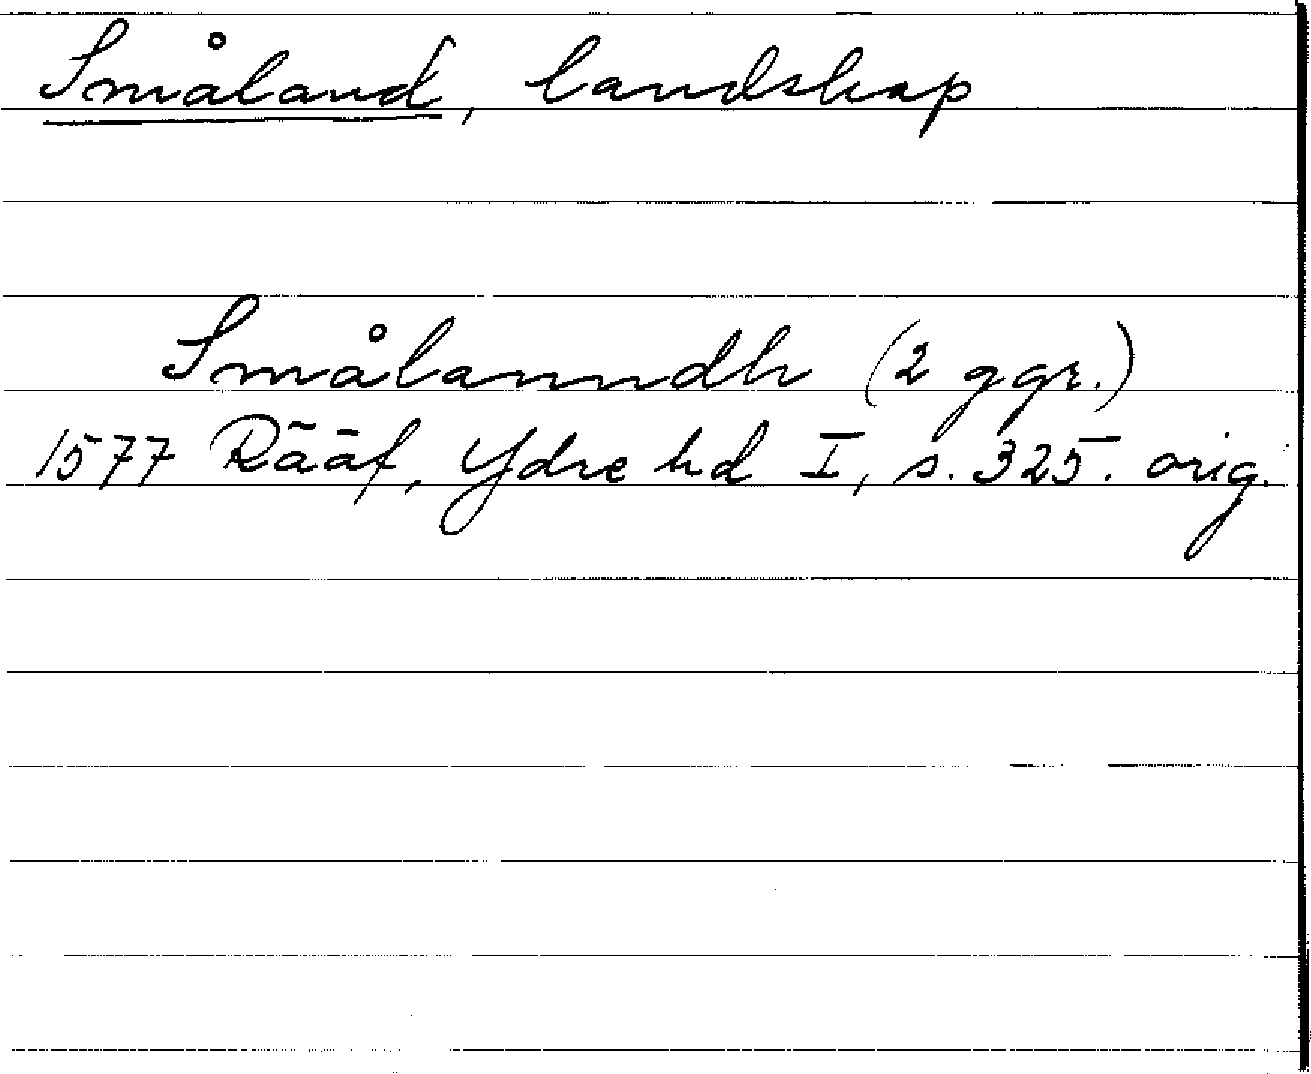 Småland, landskap
Smålanndh (2 ggr.)
1577 Rääf, Ydre hd I, s. 325. orig.